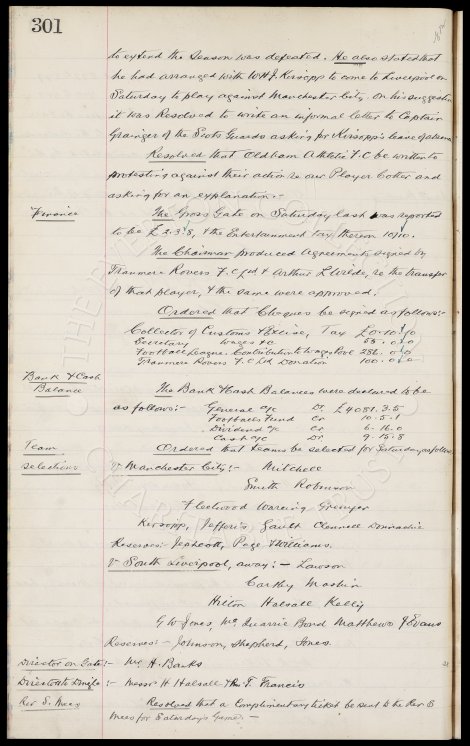 301
to extend the Season was defeated. He also stated that
he had arranged with W H J. Kirsopp to come to Liverpool on
Saturday to play against Manchester City. On his suggestion
it was Resolved to write an informal letter to Captain
Grainger of the Scots Guards asking for Kirsopp's leave of absence
Resolved that Oldham Athletic F.C. be written to
protesting against their action re our Player Coker and
asking for an explanation.-
Finance The Gross Gate on Saturday last was reported
to be £2.3.8, & the Entertainment Tax, thereon 10/10.
The Chairman produced Agreements signed by
Tranmere Rovers F.C. Ltd & Arthur L Wilde, re the transfer
of that player, & the same were approved.
Ordered that Cheques be signed as follows:-
Collector of Customs & Excise, Tax £0.10.10
Secretary Wages &c 55.0.0
Football League: Contribution to Wages Pool 286.0.0
Tranmere Rovers F.C. Ltd Donation 100.0.0
Bank & Cash The Bank & Cash Balances were declared to be
Balance as follows:- General a/c Dr. £4081.3.5
Footballers Fund Cr 10.5.1
Dividend a/c Cr 6.16.0
Cash a/c Dr 9.15.8
Team Ordered that teams be selected for Saturday as follows
selections V Manchester City:- Mitchell
Smith Robinson
Fleetwood Wareing Grenyer
Kirsopp, Jefferis Gault Clennell Donnachie
Reserves:- Jephcott, Page & Williams.
V South Liverpool, away:- Lawson
Carthy Maskin
Hilton Halsall Kelly
G W Jones, Mc Quarrie Bond Matthews J Evans
Reserves:- Johnson, Shepherd, Jones.
Director on Gate:- Mr H. Banks
Directors to Dingle:- Messrs H. Halsall & T. Francis
Rev S. Mees Resolved that a Complimentary ticket be sent to the Rev S
Mees for Saturday's Game.-